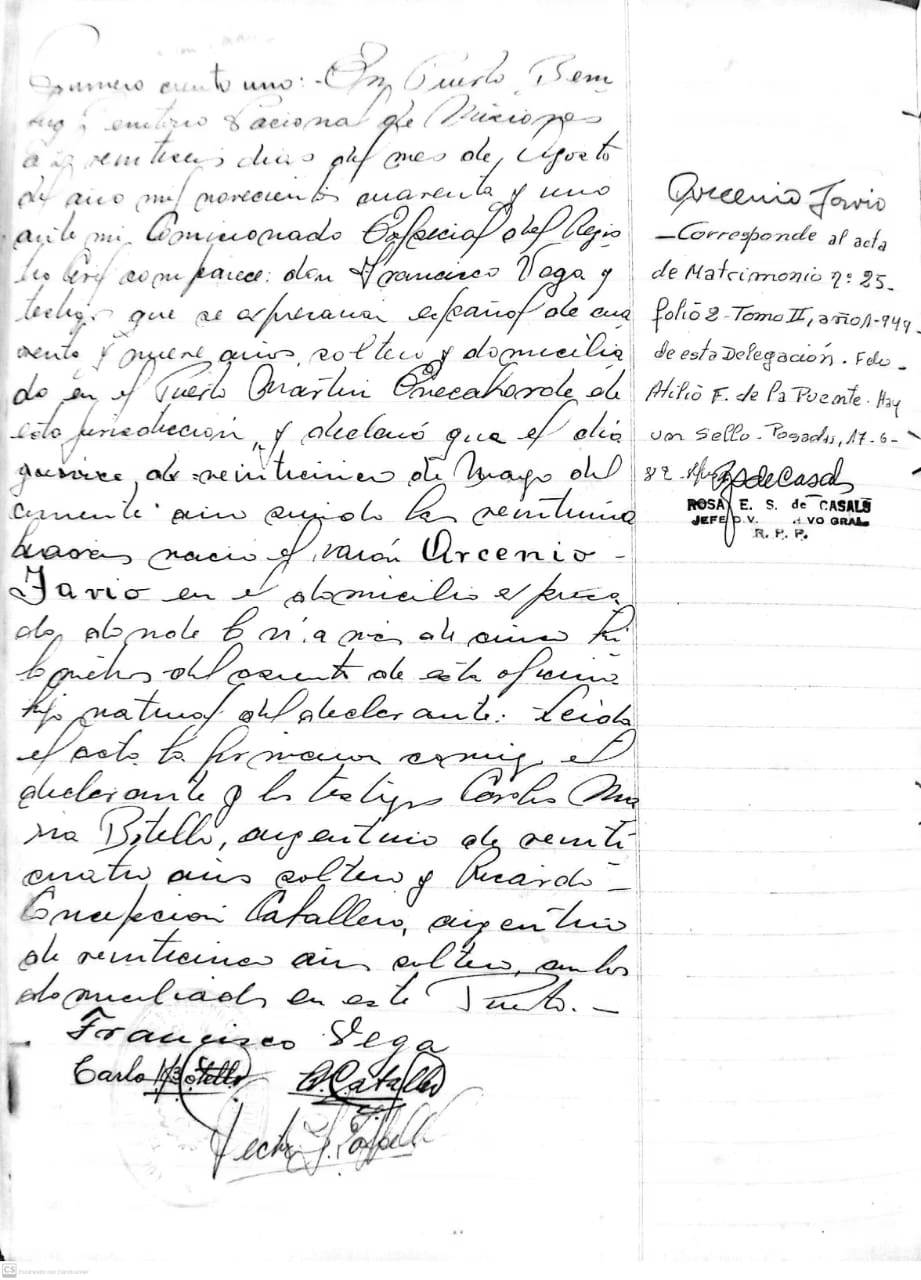 Numero ciento uno:- En Puerto Bem
Territorio Nacional de Misiones
a veintiseis dias del mes de Agosto
del año mil novecientos cuarenta y uno
ante mi Comisionado Especial del Regis
tro Civil comparece: don Francisco Vega y
que se expresaria español de cua
renta y nueve años, soltero y domicilia
do en el Puerto Martin de
esta jurisdicción, y declaró que el dia
de veinticinco de Mayo del
corriente año siendo las
horas nació el varón Arcenio-
Javio en el domicilio expresa
do, donde de cinco ki
lometros del asiento de esta oficina
hijo natural del declarante: Leida
el acta la firmaron conmigo el
declarante y los testigos Carlos Ma
ria Botello, argentino de veinti
cuatro años soltero y Ricardo-
Concepcion Caballero, argentino
de veinticinco años soltero, ambos
domiciliados en este Puerto.-
Francisco Vega
Carlo M Botello
R. Caballero
Arcenio Javio
-Corresponde al acta
de Matrimonio nº 25-
folio 2-Tomo II, año 1-949-
de esta Delegación. Fdo-
Atilio F. de la Puente. Hay
un sello-Posadas, 17-6-
82-
ROSA E. S. de CASALS
JEFE VO GRAL
R. P. P.
CS